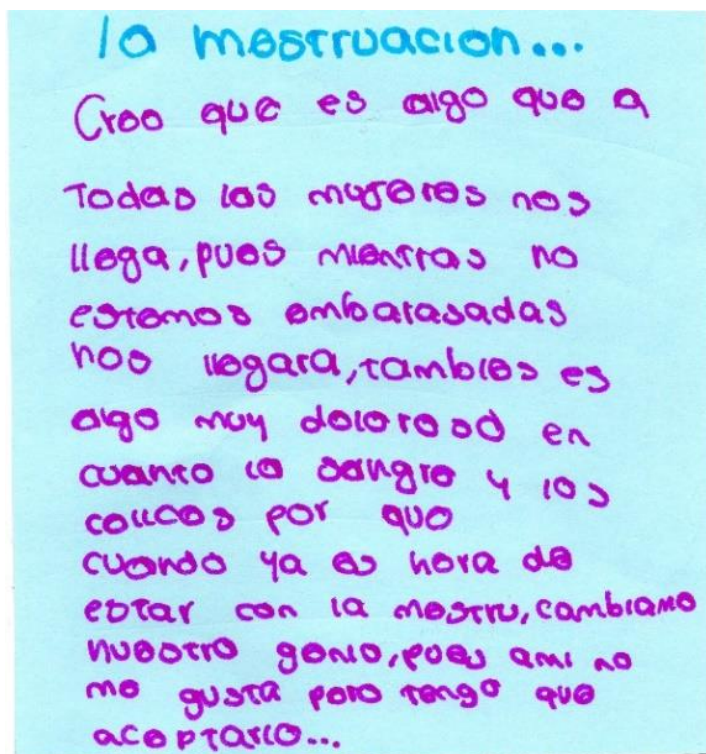 la mestruacion...
Creo que es algo que a
Todas las mujeres nos
llega, pues mientras no
estemos embarasadas
nos llegara, tambies es
algo muy doloroso en
cuanto la sangre y los
colicos por que
cuando ya es hora de
estar con la mestru, cambiamo
nuestro genio, pues ami no
me gusta pero tengo que
aceptarlo...